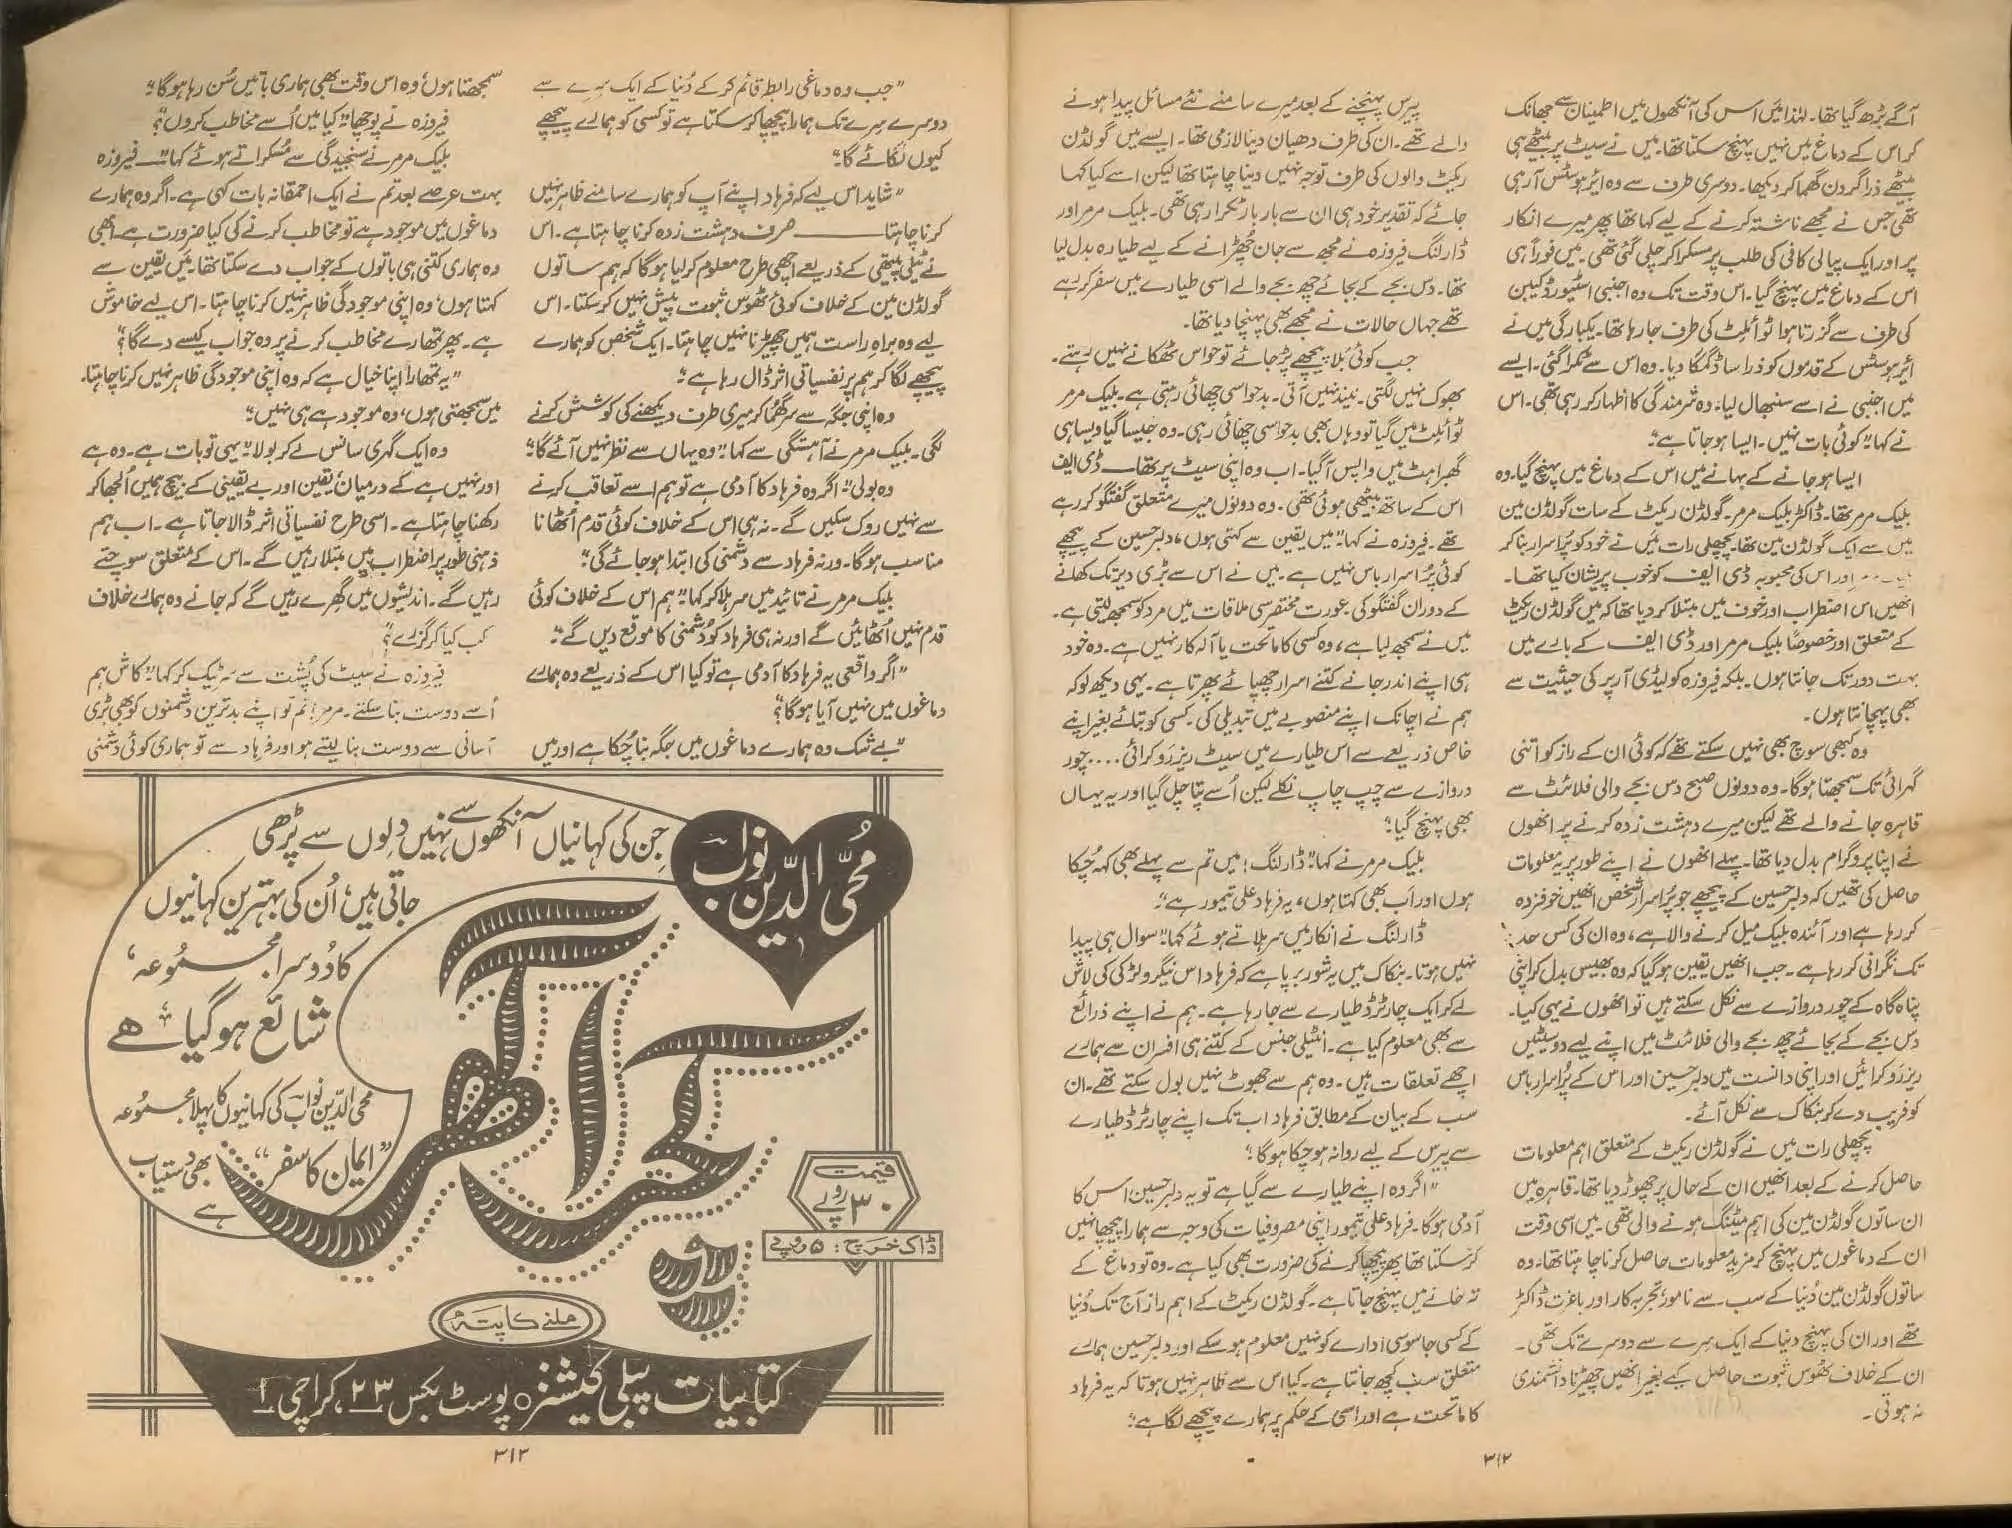 آگے بڑھ گیا تھا۔ لہٰذا میں اس کی آنکھوں میں اطمینان سے جھانک
کر اس کے دماغ میں نہیں پہنچ سکتا تھا۔ میں نے سیٹ پر بیٹھے ہی
بیٹھے ذرا گردن گھما کر دیکھا۔ دوسری طرف سے وہ ائر ہوسٹس آ رہی
تھی جس نے مجھے ناشتہ کرنے کے لیے کہا تھا پھر میرے انکار
پر اور ایک پیالی کافی کی طلب پر مسکرا کر چلی گئی تھی۔ میں فوراً ہی
اس کے دماغ میں پہنچ گیا۔ اس وقت تک وہ اجنبی اسٹیورڈ کیبن
کی طرف سے گزرتا ہوا ٹوائلٹ کی طرف جا رہا تھا۔ یکبارگی میں نے
ائر ہوسٹس کے قدموں کو ذرا سا ڈگمگا دیا۔ وہ اس سے ٹکرا گئی۔ ایسے
میں اجنبی نے اسے سنبھال لیا۔ وہ شرمندگی کا اظہار کر رہی تھی۔ اس
نے کہا "کوئی بات نہیں۔ ایسا ہو جاتا ہے"۔
ایسا ہو جانے کے بہانے میں اس کے دماغ میں پہنچ گیا۔ وہ
بلیک مرمر تھا۔ ڈاکٹر بلیک مرمر۔ گولڈن ریکٹ کے سات گولڈن مین
میں سے ایک گولڈن مین تھا۔ پچھلی رات میں نے خود کو پُراسرار بنا کر
اور اس کی محبوبہ ڈی ایف کو خوب پریشان کیا تھا۔
انھیں اس اضطراب اور خوف میں مبتلا کر دیا تھا کہ میں گولڈن ریکٹ
کے متعلق اور خصوصاً بلیک مرمر اور ڈی ایف کے بارے میں
بہت دور تک جانتا ہوں۔ بلکہ فیروزہ کو لیڈی آرپر کی حیثیت سے
بھی پہچانتا ہوں۔
وہ کبھی سوچ بھی نہیں سکتے تھے کہ کوئی ان کے راز کو اتنی
گہرائی تک سمجھتا ہوگا۔ وہ دونوں صبح دس بجے والی فلائٹ سے
قاہرہ جانے والے تھے لیکن میرے دہشت زدہ کرنے پر انھوں
نے اپنا پروگرام بدل دیا تھا۔ پہلے انھوں نے اپنے طور پر یہ معلومات
حاصل کی تھیں کہ دلبر حسین کے پیچھے جو پُراسرار شخص انھیں خوفزدہ
کر رہا ہے اور آئندہ بلیک میل کرنے والا ہے، وہ ان کی کس حد
تک نگرانی کر رہا ہے۔ جب انھیں یقین ہو گیا کہ وہ بھیس بدل کر اپنی
پناہ گاہ کے چور دروازے سے نکل سکتے ہیں تو انھوں نے یہی کیا۔
دس بجے کے بجائے چھ بجے والی فلائٹ میں اپنے لیے دو سیٹیں
ریزرو کرائیں اور اپنی دانست میں دلبر حسین اور اس کے پُراسرار باس
کو فریب دے کر بنکاک سے نکل آئے۔
پچھلی رات میں نے گولڈن ریکٹ کے متعلق اہم معلومات
حاصل کرنے کے بعد انھیں ان کے حال پر چھوڑ دیا تھا۔ قاہرہ میں
ان ساتوں گولڈن مین کی اہم میٹنگ ہونے والی تھی۔ میں اسی وقت
ان کے دماغوں میں پہنچ کر مزید معلومات حاصل کرنا چاہتا تھا۔ وہ
ساتوں گولڈن مین دُنیا کے سب سے نامور، تجربہ کار اور باعزت ڈاکٹر
تھے اور ان کی پہنچ دنیا کے ایک سرے سے دوسرے تک تھی۔
ان کے خلاف ٹھوس ثبوت حاصل کیے بغیر انھیں چھیڑنا دانشمندی
نہ ہوتی۔
پیرس پہنچنے کے بعد میرے سامنے نئے مسائل پیدا ہونے
والے تھے۔ ان کی طرف دھیان دینا لازمی تھا۔ ایسے میں گولڈن
ریکٹ والوں کی طرف توجہ نہیں دینا چاہتا تھا لیکن اسے کیا کہا
جائے کہ تقدیر خود ہی ان سے بار بار ٹکرا رہی تھی۔ بلیک مرمر اور
ڈارلنگ فیروزہ نے مجھ سے جان چھڑانے کے لیے طیارہ بدل لیا
تھا۔ دس بجے کے بجائے چھ بجے والے اسی طیارے میں سفر کر رہے
تھے جہاں حالات نے مجھے بھی پہنچا دیا تھا۔
جب کوئی بلا پیچھے پڑ جائے تو حواس ٹھکانے نہیں رہتے۔
بھوک نہیں لگتی۔ نیند نہیں آتی۔ بدحواسی چھائی رہتی ہے۔ بلیک مرمر
ٹوائلٹ میں گیا تو وہاں بھی بدحواسی چھائی رہی۔ وہ جیسا گیا ویسا ہی
گھبراہٹ میں واپس آ گیا۔ اب وہ اپنی سیٹ پر تھا — ڈی ایف
اس کے ساتھ بیٹھی ہوئی تھی۔ وہ دونوں میرے متعلق گفتگو کر رہے
تھے۔ فیروزہ نے کہا "میں یقین سے کہتی ہوں، دلبر حسین کے پیچھے
کوئی پُراسرار باس نہیں ہے۔ میں نے اس سے بڑی دیر تک کھانے
کے دوران گفتگو کی۔ عورت مختصر سی ملاقات میں مرد کو سمجھ لیتی ہے۔
میں نے سمجھ لیا ہے، وہ کسی کا ماتحت یا آلہ کار نہیں ہے۔ وہ خود
ہی اپنے اندر جانے کتنے اسرار چھپائے پھرتا ہے۔ یہی دیکھ لو کہ
ہم نے اچانک اپنے منصوبے میں تبدیلی کی۔ کسی کو بتائے بغیر اپنے
خاص ذریعے سے اس طیارے میں سیٹ ریزرو کرائی .... چور
دروازے سے چپ چاپ نکلے لیکن اُسے پتا چل گیا اور یہ یہاں
بھی پہنچ گیا"۔
بلیک مرمر نے کہا "ڈارلنگ! میں تم سے پہلے بھی کہہ چُکا
ہوں اور اَب بھی کہتا ہوں، یہ فرہاد علی تیمور ہے"۔
ڈارلنگ نے انکار میں سر ہلاتے ہوئے کہا "سوال ہی پیدا
نہیں ہوتا۔ بنکاک میں یہ شور برپا ہے کہ فرہاد اس نیگرو لڑکی کی لاش
لے کر ایک چارٹرڈ طیارے سے جا رہا ہے۔ ہم نے اپنے ذرائع
سے بھی معلوم کیا ہے۔ انٹیلی جنس کے کتنے ہی افسران سے ہمارے
اچھے تعلقات ہیں۔ وہ ہم سے جھوٹ نہیں بول سکتے تھے۔ ان
سب کے بیان کے مطابق فرہاد اب تک اپنے چارٹرڈ طیارے
سے پیرس کے لیے روانہ ہو چکا ہوگا"۔
"اگر وہ اپنے طیارے سے گیا ہے تو یہ دلبر حسین اس کا
آدمی ہوگا۔ فرہاد علی تیمور اپنی مصروفیات کی وجہ سے ہمارا پیچھا نہیں
کر سکتا تھا پھر پیچھا کرنے کی ضرورت بھی کیا ہے۔ وہ تو دماغ کے
تہ خانے میں پہنچ جاتا ہے۔ گولڈن ریکٹ کے اہم راز آج تک دُنیا
کے کسی جاسوسی ادارے کو نہیں معلوم ہو سکے اور دلبر حسین ہمارے
متعلق سب کچھ جانتا ہے۔ کیا اس سے ظاہر نہیں ہوتا کہ یہ فرہاد
کا ماتحت ہے اور اسی کے حکم پر ہمارے پیچھے لگا ہے"۔
۳۱۲
"جب وہ دماغی رابطہ قائم کر کے دُنیا کے ایک سرے سے
دوسرے سرے تک ہمارا پیچھا کر سکتا ہے تو کسی کو ہمارے پیچھے
کیوں لگائے گا"۔
"شاید اس لیے کہ فرہاد اپنے آپ کو ہمارے سامنے ظاہر نہیں
کرنا چاہتا — صرف دہشت زدہ کرنا چاہتا ہے۔ اس
نے ٹیلی پیتھی کے ذریعے اچھی طرح معلوم کر لیا ہوگا کہ ہم ساتوں
گولڈن مین کے خلاف کوئی ٹھوس ثبوت پیش نہیں کر سکتا۔ اس
لیے وہ براہِ راست ہمیں چھیڑنا نہیں چاہتا۔ ایک شخص کو ہمارے
پیچھے لگا کر ہم پر نفسیاتی اثر ڈال رہا ہے"۔
وہ اپنی جگہ سے سر گھُما کر میری طرف دیکھنے کی کوشش کرنے
لگی۔ بلیک مرمر نے آہستگی سے کہا "وہ یہاں سے نظر نہیں آئے گا"۔
وہ بولی "اگر وہ فرہاد کا آدمی ہے تو ہم اسے تعاقب کرنے
سے نہیں روک سکیں گے۔ نہ ہی اس کے خلاف کوئی قدم اُٹھانا
مناسب ہوگا۔ ورنہ فرہاد سے دشمنی کی ابتدا ہو جائے گی"۔
بلیک مرمر نے تائید میں سر ہلا کر کہا "ہم اس کے خلاف کوئی
قدم نہیں اُٹھائیں گے اور نہ ہی فرہاد کو دُشمنی کا موقع دیں گے"۔
"اگر واقعی یہ فرہاد کا آدمی ہے تو کیا اس کے ذریعے وہ ہمارے
دماغوں میں نہیں آیا ہوگا؟"
"بے شک وہ ہمارے دماغوں میں جگہ بنا چُکا ہے اور میں
سمجھتا ہوں، وہ اس وقت بھی ہماری باتیں سُن رہا ہوگا"۔
فیروزہ نے پوچھا "کیا میں اُسے مخاطب کروں؟"
بلیک مرمر نے سنجیدگی سے مُسکراتے ہوئے کہا "— فیروزہ
بہت عرصے بعد تم نے ایک احمقانہ بات کہی ہے۔ اگر وہ ہمارے
دماغوں میں موجود ہے تو مخاطب کرنے کی کیا ضرورت ہے۔ ابھی
وہ ہماری کتنی ہی باتوں کے جواب دے سکتا تھا۔ میں یقین سے
کہتا ہوں، وہ اپنی موجودگی ظاہر نہیں کرنا چاہتا۔ اس لیے خاموش
ہے۔ پھر تمھارے مخاطب کرنے پر وہ جواب کیسے دے گا؟"
"یہ تمھارا اپنا خیال ہے کہ وہ اپنی موجودگی ظاہر نہیں کرنا چاہتا۔
میں سمجھتی ہوں، وہ موجود ہے ہی نہیں"۔
وہ ایک گہری سانس لے کر بولا "یہی تو بات ہے۔ وہ ہے
اور نہیں ہے کے درمیان، یقین اور بے یقینی کے بیچ ہمیں اُلجھا کر
رکھنا چاہتا ہے۔ اسی طرح نفسیاتی اثر ڈالا جاتا ہے۔ اب ہم
ذہنی طور پر اضطراب میں مبتلا رہیں گے۔ اس کے متعلق سوچتے
رہیں گے۔ اندیشوں میں گھِرے رہیں گے کہ جانے وہ ہمارے خلاف
کب کیا کر گزرے؟"
فیروزہ نے سیٹ کی پُشت سے سر ٹیک کر کہا "کاش ہم
اُسے دوست بنا سکتے۔ مرمر! تم تو اپنے بدترین دُشمنوں کو بھی بڑی
آسانی سے دوست بنا لیتے ہو اور فرہاد سے تو ہماری کوئی دُشمنی
محیُّ الدّین نوابؔ
جِن کی کہانیاں آنکھوں سے نہیں دِلوں سے پڑھی
جاتی ہیں، اُن کی بہترین کہانیوں
کا دُوسرا مجموُعہ،
شائع ہو گیا ہے
محی الدّین نوابؔ کی کہانیوں کا پہلا مجموُعہ
"ایمان کا سفر" بھی دستیاب
ہے
کچرا گھر
قیمت
۳۰ روپے
ڈاک خرچ: ۵ روپے
ملنے کا پتہ
کتابیات پبلی کیشنز ○ پوسٹ بکس ۲۳، کراچی ۱
۳۱۳